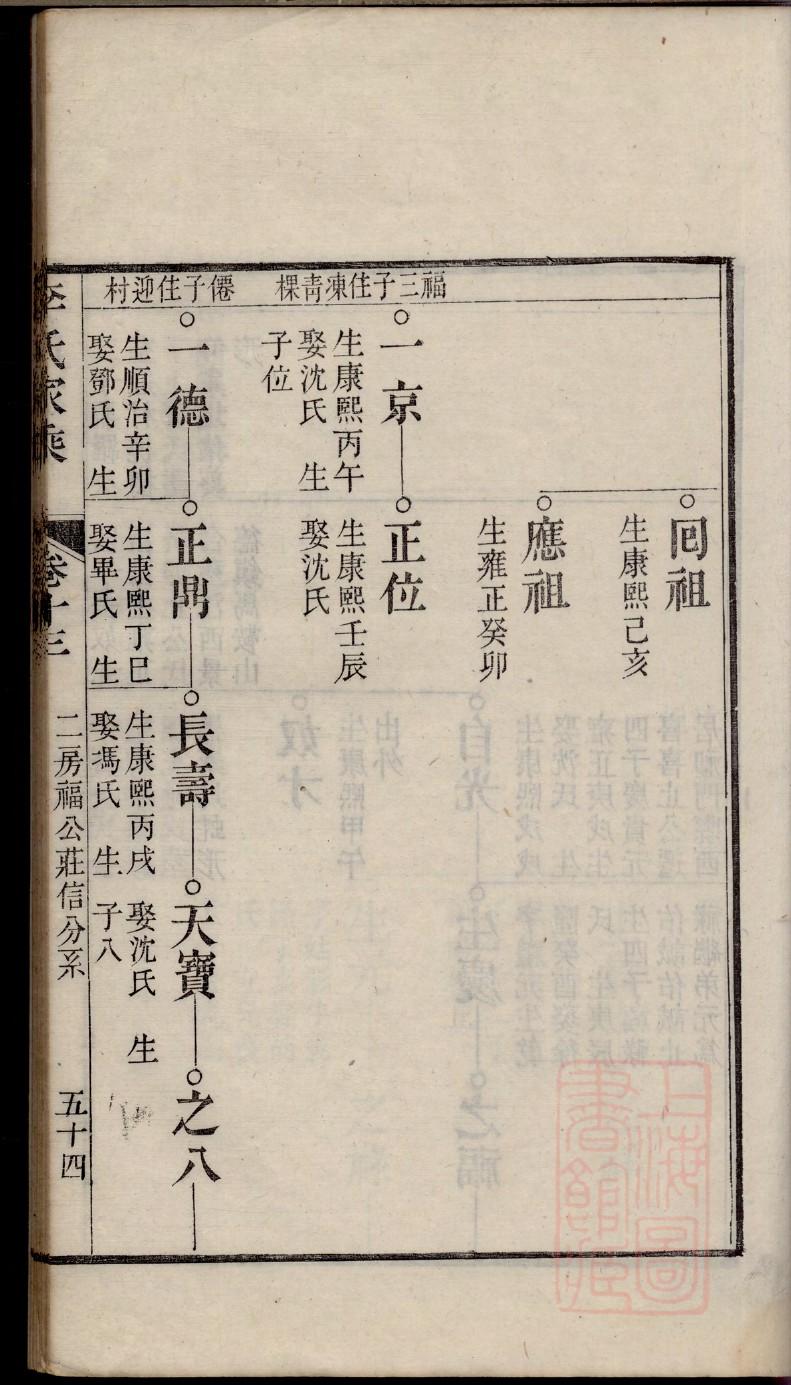 福三子住凍靑棵
僊子住迎村
回祖
生康熙己亥
應祖
生雍正癸卯
一京
生康熙丙午
娶沈氏 生
子位
正位
生康熙壬辰
娶沈氏
一德
生順治辛卯
娶鄧氏 生
正鼎
生康熙丁巳
娶畢氏 生
長壽
生康熙丙戌
娶馮氏 生
天寶
娶沈氏 生
子八
之八
李氏家乘
卷十三
二房福公莊信分系
五十四
上海圖書館藏